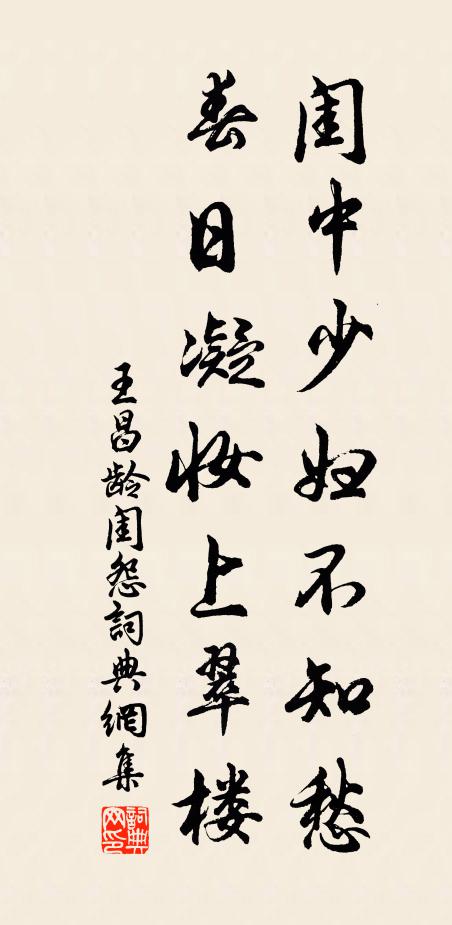 闺中少妇不知愁
春日凝妆上翠楼
王昌龄闺怨詞典網集
詞典网印